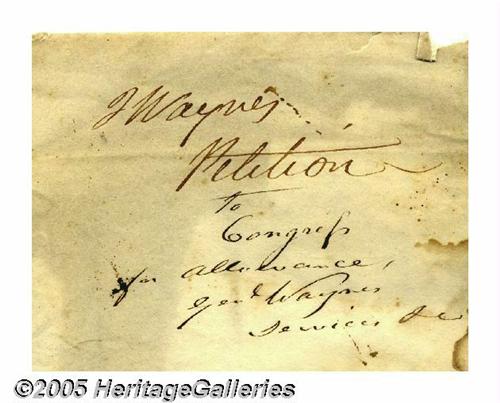 I Wayne's
Petition
to
Congress
for allowance,
Genl Waynes
services &c
©2005 HeritageGalleries